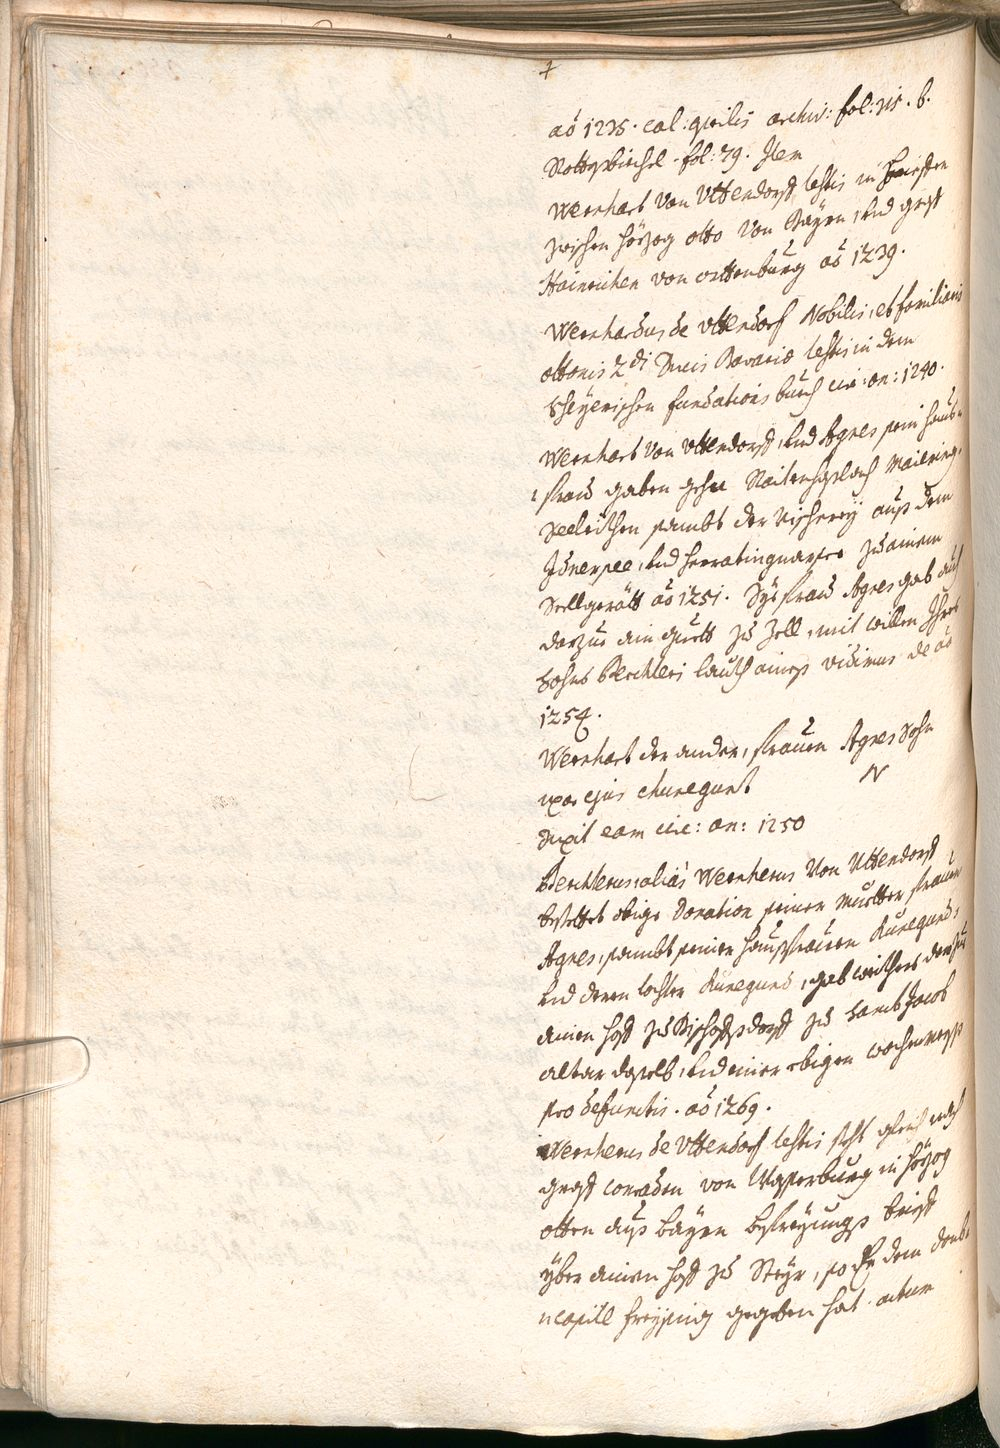 +
aõ 1235. cal: archiv: fol: 315. b.
fol: 79. Item
Wernhart Von Uttendorff testis in
zwischen Hörzog otto Von Bayrn, und graff
Hainrichen von orttenburg aõ 1239.
Wernhardus de Uttendorf Nobilis, et familiaris
ottonis 2di Ducis Bavariæ testis in dem
Scheyerischen fundations buech circ: an: 1240.
Wernhart Von Uttendorff, und Agnes sein haus-
frau gaben gehn Raitenhaslach
sambt der Vischerey aus dem
und zu ainem
Seelgerätt aõ 1251. Dise frau Agnes gab auch
darzue ain guett zu Zell, mit willen Ihres
Sohns Berchters lauth aines vidimus de aõ
1254.
Wernhart der ander, frauen Agnes Sohn
uxor ejus Chunegunt N
Duxit eam circ: an: 1250
Berchterus, alias Wernherus Von Uttendorff
bestettet obige Donation seiner Muetter frauen
Agnes, sambt seiner hausfrauen Kunegund,
und deren tochter Kunegund, gab weithers darzue
ainen hoff zu Bischoffsdorff zu Sanct Jacob
altar daselb, und einer ebigen wochenmess
pro defunctis. aõ 1269.
Wernherus de Uttendorf testis steht gleich nach
graff Conraden von Wasserburg in Hörzog
otten aus Bayrn befreyungs brieff
yber ainen hoff zu Steyr, so Er dem domb
capitl Freysing gegeben hat. actum